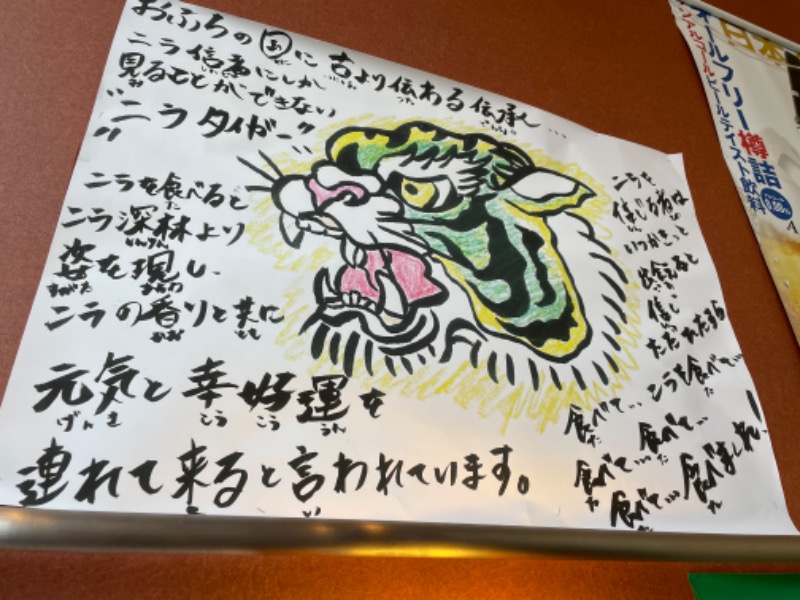 おふろの国に 古より伝わる伝承…
ニラ信者にしか
見ることができない
"ニラタイガー"
ニラを食べると
ニラ深林より
姿を現し、
ニラの香りと共に
元気と幸好運を
げんき こう こう うん
連れて来ると言われています。
ニラを
信じる者は
いつかきっと
出会えると
信じ
ただひたすら
ニラを食べて…
食べて… 食べて…
食べて… 食べて… 食べまくれ!
日本
オールフリー樽詰
ンアルコールビールテイスト飲料